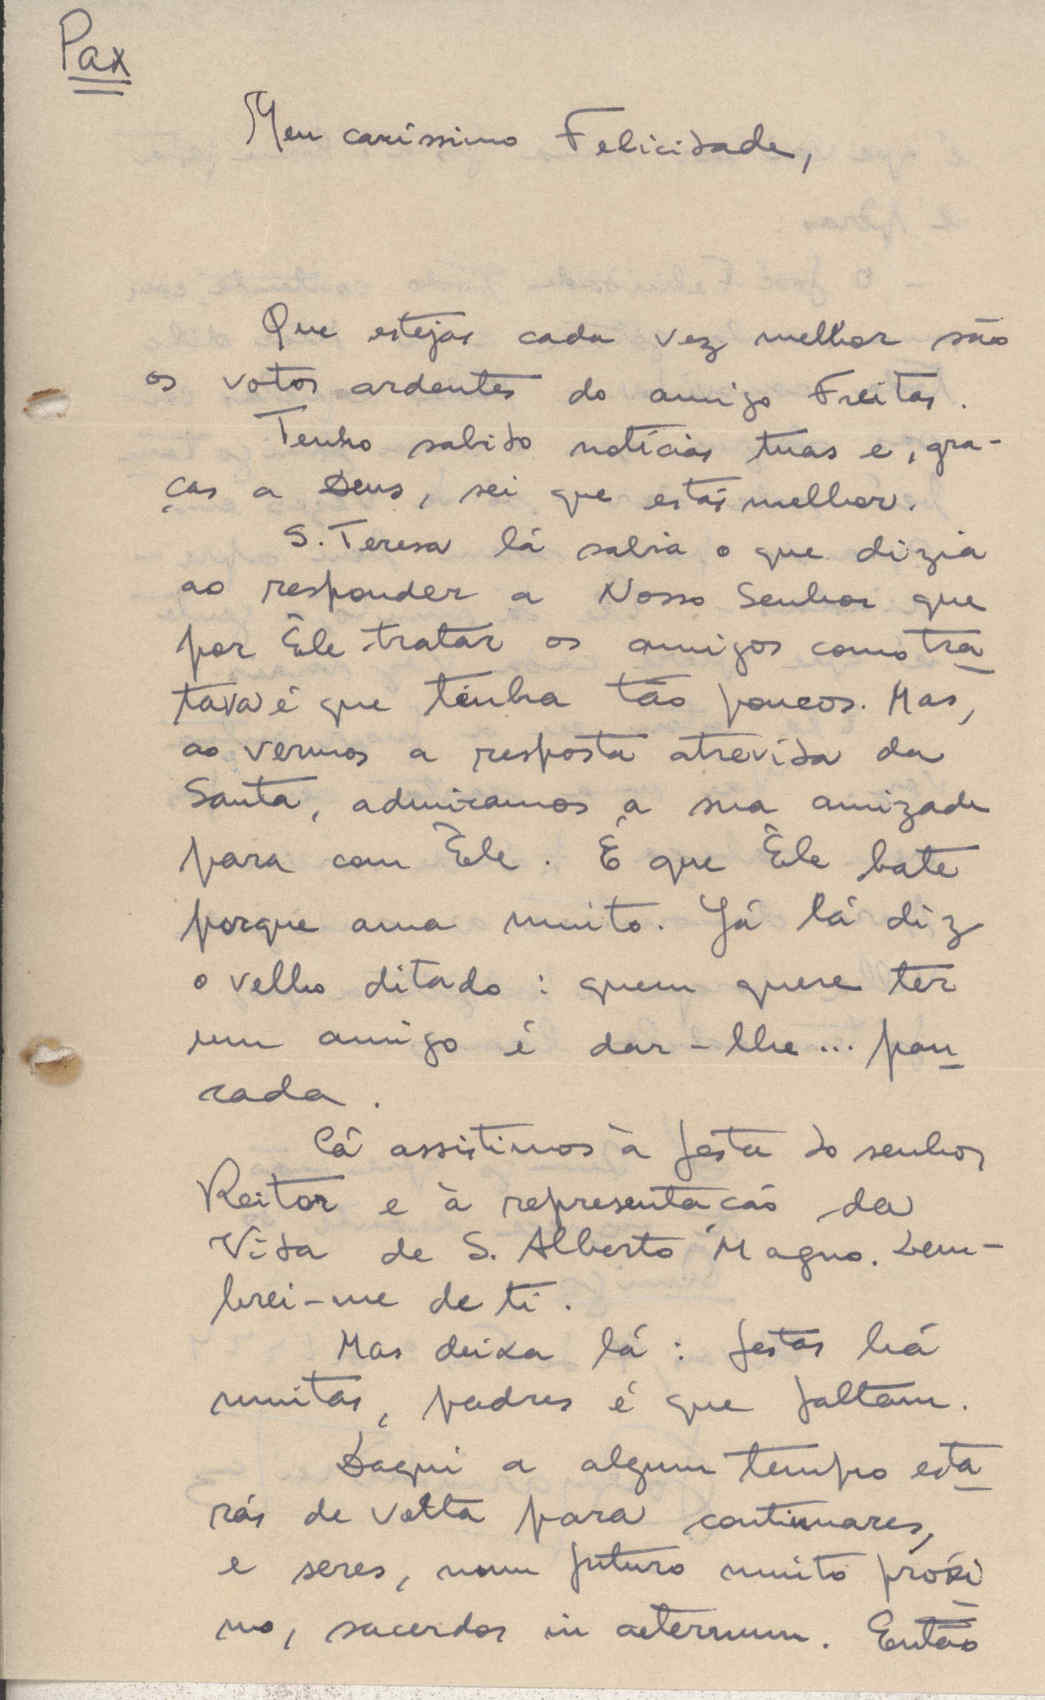 Pax
Meu caríssimo Felicidade,
Que estejas cada vez melhor são
os votos ardentes do amigo Freitas.
Tenho sabido notícias tuas e, gra-
ças a Deus, sei que estás melhor.
S. Teresa lá sabia o que dizia
ao responder a Nosso Senhor que
por Êle tratar os amigos como tra-
tava é que tinha tão poucos. Mas,
ao vermos a resposta atrevida da
Santa, admiramos a sua amizade
para com Êle. É que Êle bate
porque ama muito. Já lá diz
o velho ditado: quem quere ter
um amigo é dar-lhe... pau-
rada.
Cá assistimos à festa do senhor
Reitor e à representação da
Vida de S. Alberto Magno. Lem-
brei-me de ti.
Mas deixa lá: festas há
muitas, padres é que faltam.
Daqui a algum tempo esta-
rás de volta para continuares,
e seres, num futuro muito próxi-
mo, sacerdos in aeternum. Então